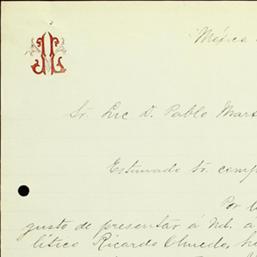 México
Sr. Lic. D. Pablo Mar
Estimado Sr. comp
Por
gusto de presentar á Ud. a
lítico Ricardo Olmedo, h